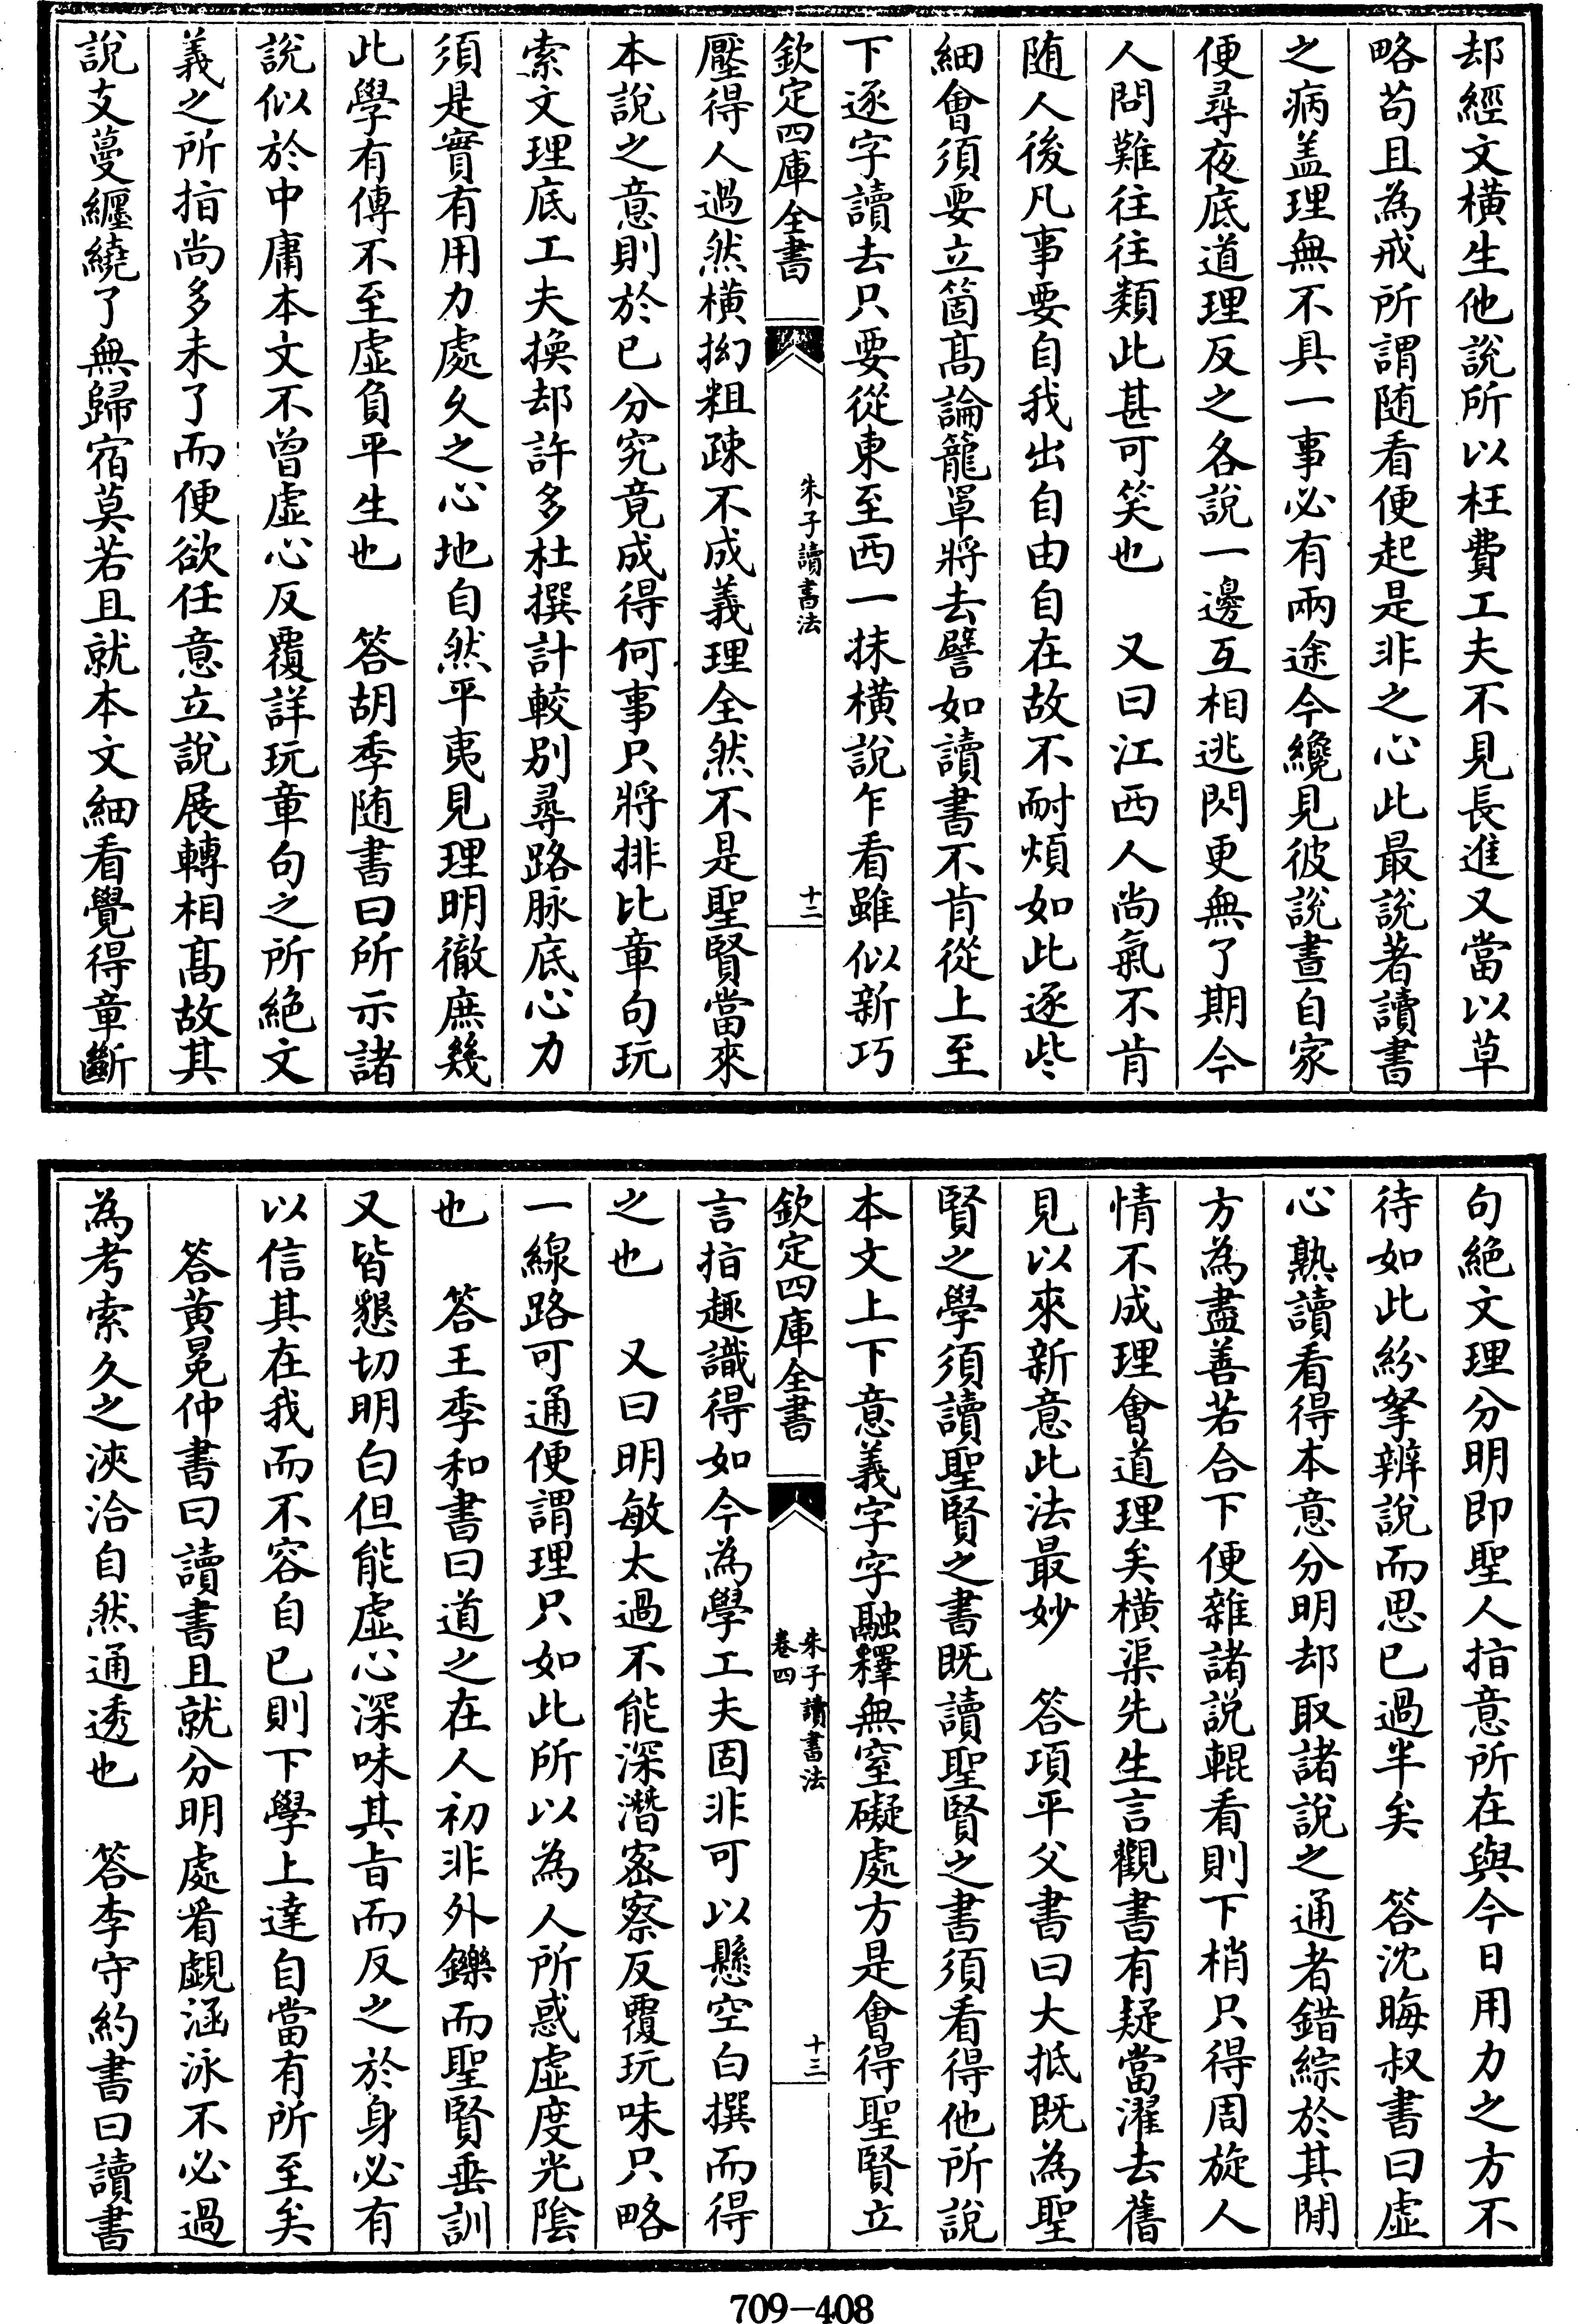 却經文横生他說所以枉費工夫不見長進又當以草
略苟且為戒所謂随看便起是非之心此最說著讀書
之病盖理無不具一事必有兩途今纔見彼說晝自家
便尋夜底道理反之各說一邊互相逃閃更無了期今
人問難往往類此甚可笑也　又曰江西人尚氣不肯
随人後凡事要自我出自由自在故不耐煩如此逐些
細會須要立箇髙論籠罩將去譬如讀書不肯從上至
下逐字讀去只要從東至西一抹横說乍看雖似新巧
欽定四庫全書
朱子讀書法
十二
壓得人過然横拗粗疎不成義理全然不是聖賢當來
本說之意則於已分究竟成得何事只將排比章句玩
索文理底工夫換却許多杜撰計較别尋路脉底心力
須是實有用力處久之心地自然平夷見理明徹庶幾
此學有傳不至虚負平生也　答胡季随書曰所示諸
說似於中庸本文不曾虚心反覆詳玩章句之所絶文
義之所指尚多未了而便欲任意立說展轉相髙故其
說支蔓纒繞了無歸宿莫若且就本文細看覺得章斷
句絶文理分明即聖人指意所在與今日用力之方不
待如此紛拏辨說而思已過半矣　答沈晦叔書曰虚
心熟讀看得本意分明却取諸說之通者錯綜於其閒
方為盡善若合下便雜諸說輥看則下梢只得周旋人
情不成理會道理矣横渠先生言觀書有疑當濯去舊
見以來新意此法最妙　答項平父書曰大抵既為聖
賢之學須讀聖賢之書既讀聖賢之書須看得他所說
本文上下意義字字融釋無窒礙處方是會得聖賢立
欽定四庫全書
朱子讀書法
卷四
十三
言指趣識得如今為學工夫固非可以懸空白撰而得
之也　又曰明敏太過不能深潛密察反覆玩味只略
一線路可通便謂理只如此所以為人所惑虚度光陰
也　答王季和書曰道之在人初非外鑠而聖賢垂訓
又皆懇切明白但能虚心深味其㫖而反之於身必有
以信其在我而不容自已則下學上達自當有所至矣
答黄冕仲書曰讀書且就分明處看覷涵泳不必過
為考索久之浹洽自然通透也　答李守約書曰讀書
709-408